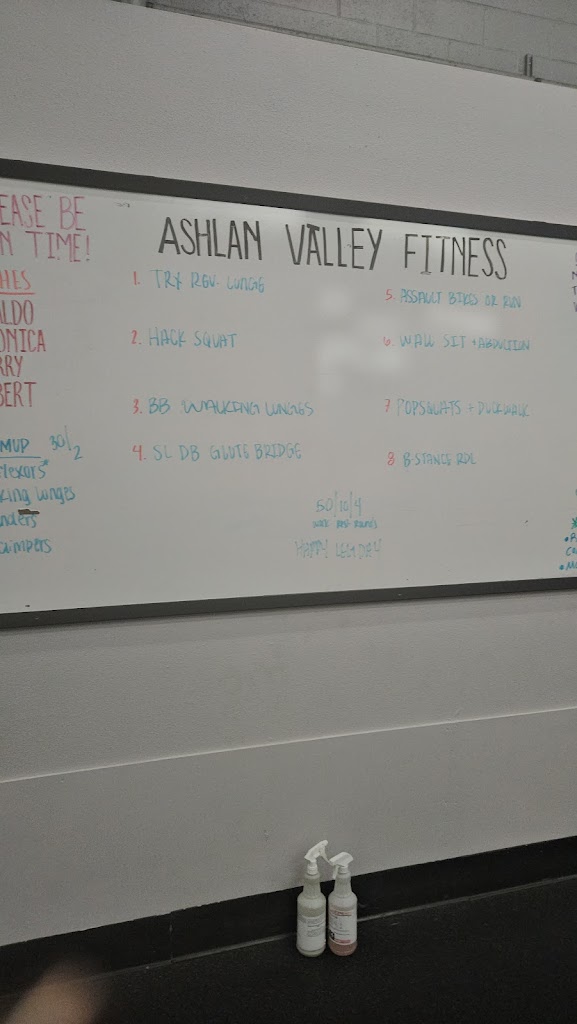 EASE BE
N TIME!
HES
ALDO
ONICA
RRY
BERT
MUP 30/2
flexors*
king lunges
nders
climpers
ASHLAN VALLEY FITNESS
1. TRX REV. LUNGE
2. HACK SQUAT
3. BB WALKING LUNGES
4. SL DB GLUTE BRIDGE
5. ASSAULT BIKES OR RUN
6. WALL SIT + ABDUCTION
7 POPSQUATS + DUCKWALK
8 B-STANCE RDL
50/10/4
work rest rounds
HAPPY LEG DAY